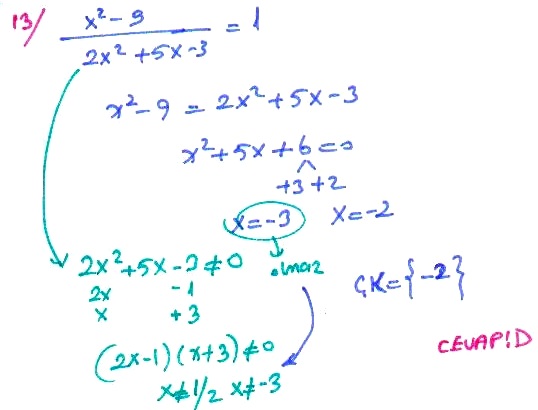 13/ x² - 9 / 2x² + 5x - 3 = 1
x² - 9 = 2x² + 5x - 3
x² + 5x + 6 = 0
+3 +2
x = -3 x = -2
2x² + 5x - 3 ≠ 0 olmaz ÇK = {-2}
2x -1
x +3
(2x-1) (x+3) ≠ 0
x ≠ 1/2 x ≠ -3
CEVAP!D